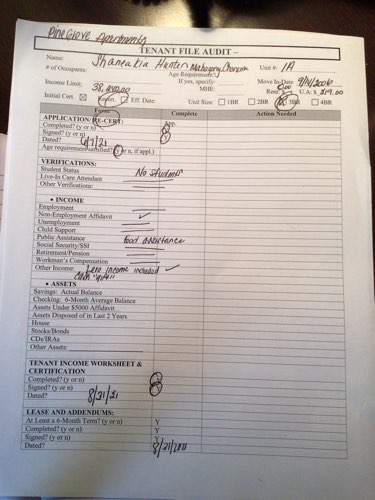 Pine Grove Apartments
TENANT FILE AUDIT –
Name: Shaneakia Hunter Unit #: 1A
# of Occupants: Age Requirement?
If yes, specify: Move In Date
Income Limit: MHE: Rent U.A. $
Initial Cert. Recert. Eff. Date: Unit Size: 1BR 2BR 3BR 4BR
Form Complete Action Needed
APPLICATION/RE-CERT App.
Completed? (y or n)
Signed? (y or n)
Dated? 6/7/21
Age requirement satisfied? (y or n, if appl.)
VERIFICATIONS:
Student Status No students
Live-In Care Attendant
Other Verifications:
• INCOME
Employment
Non-Employment Affidavit ✓
Unemployment
Child Support
Public Assistance Food Assistance
Social Security/SSI
Retirement/Pension
Workman's Compensation
Other Income: Zero income included ✓
• ASSETS
Savings: Actual Balance
Checking: 6-Month Average Balance
Assets Under $5000 Affidavit
Assets Disposed of in Last 2 Years
House
Stocks/Bonds
CDs/IRAs
Other Assets:
TENANT INCOME WORKSHEET &
CERTIFICATION
Completed? (y or n)
Signed? (y or n)
Dated? 8/31/21
LEASE AND ADDENDUMS:
At Least a 6-Month Term? (y or n) Y
Completed? (y or n) Y
Signed? (y or n) Y
Dated?